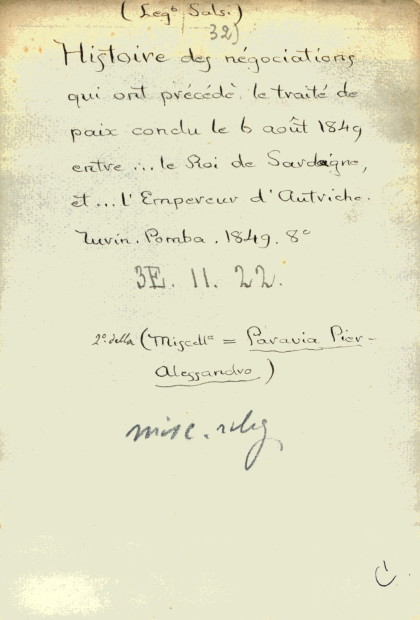 (Legº Sals.)
32)
Histoire des négociations
qui ont précédé le traité de
paix conclu le 6 août 1849
entre ... le Roi de Sardaigne,
et ... l'Empereur d'Autriche.
Turin. Pomba. 1849. 8º
3E. 11. 22.
2º della (Miscellª = Paravia Pier-
Alessandro)
misc.